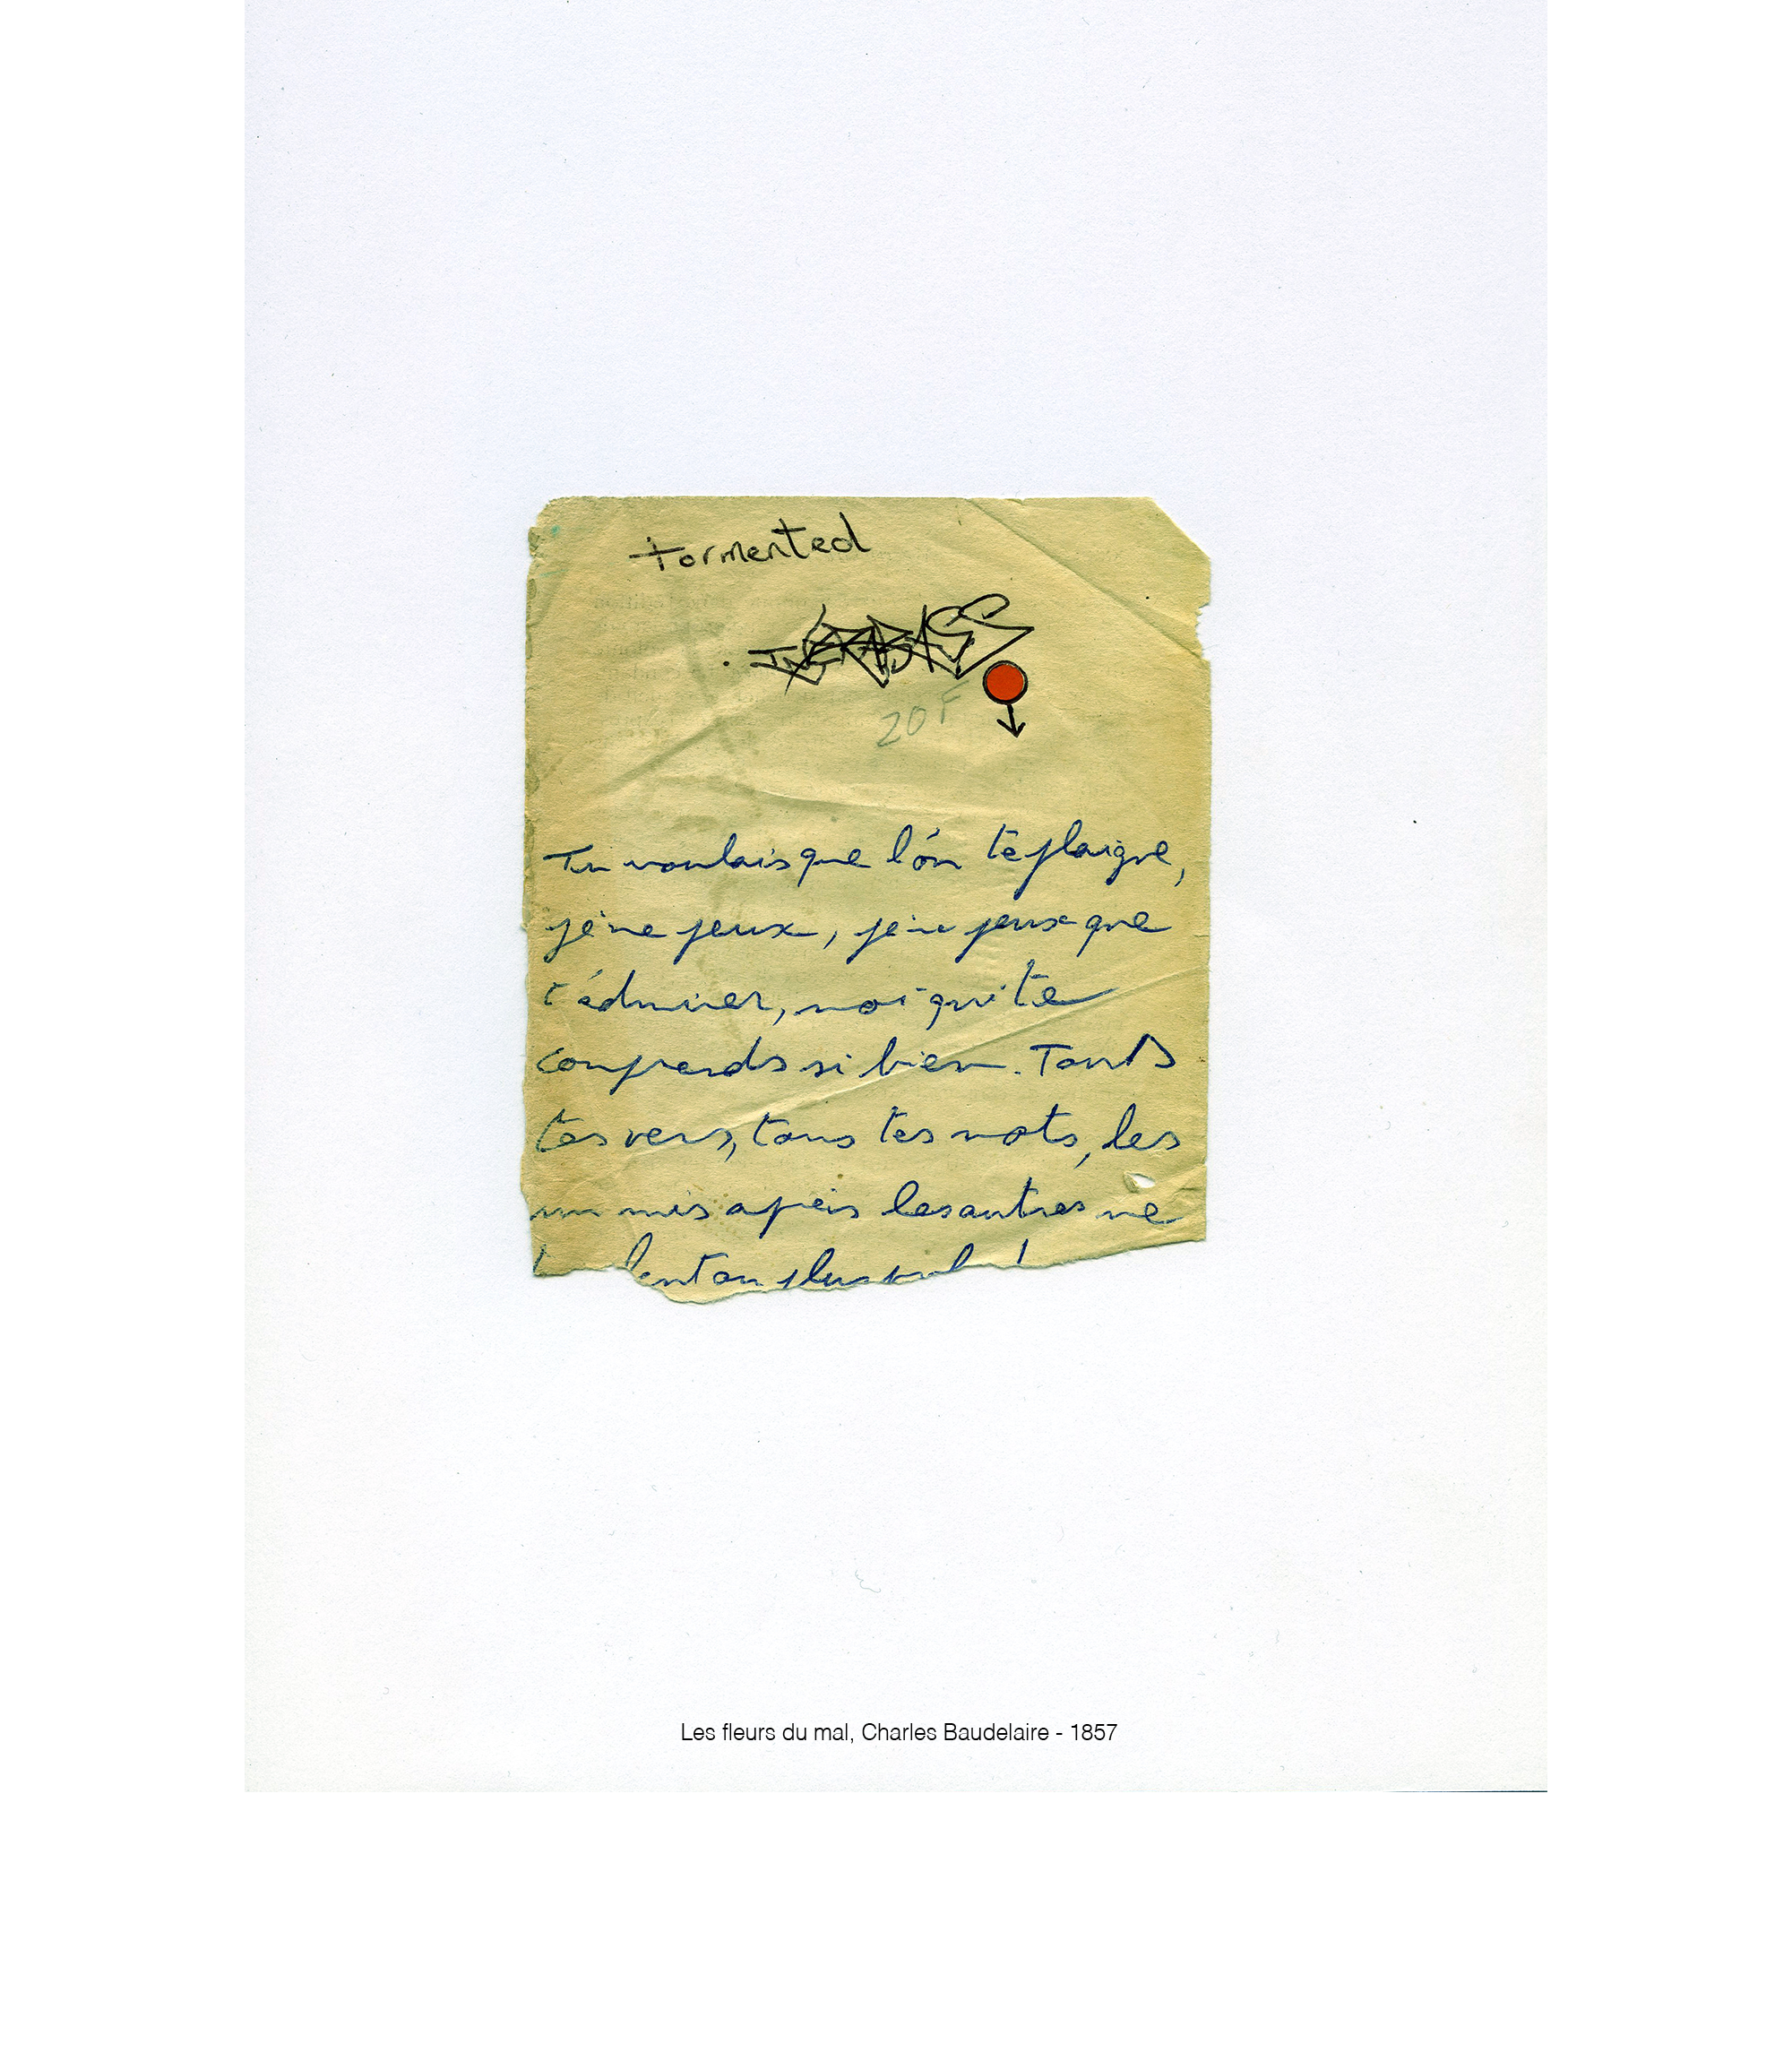 tormented
20F
Tu voulais que l'on te plaigne,
je ne peux, je ne peux que
t'admirer, moi qui te
comprends si bien. Tous
tes vers, tous tes mots, les
un mis après les autres ne
plus
Les fleurs du mal, Charles Baudelaire - 1857